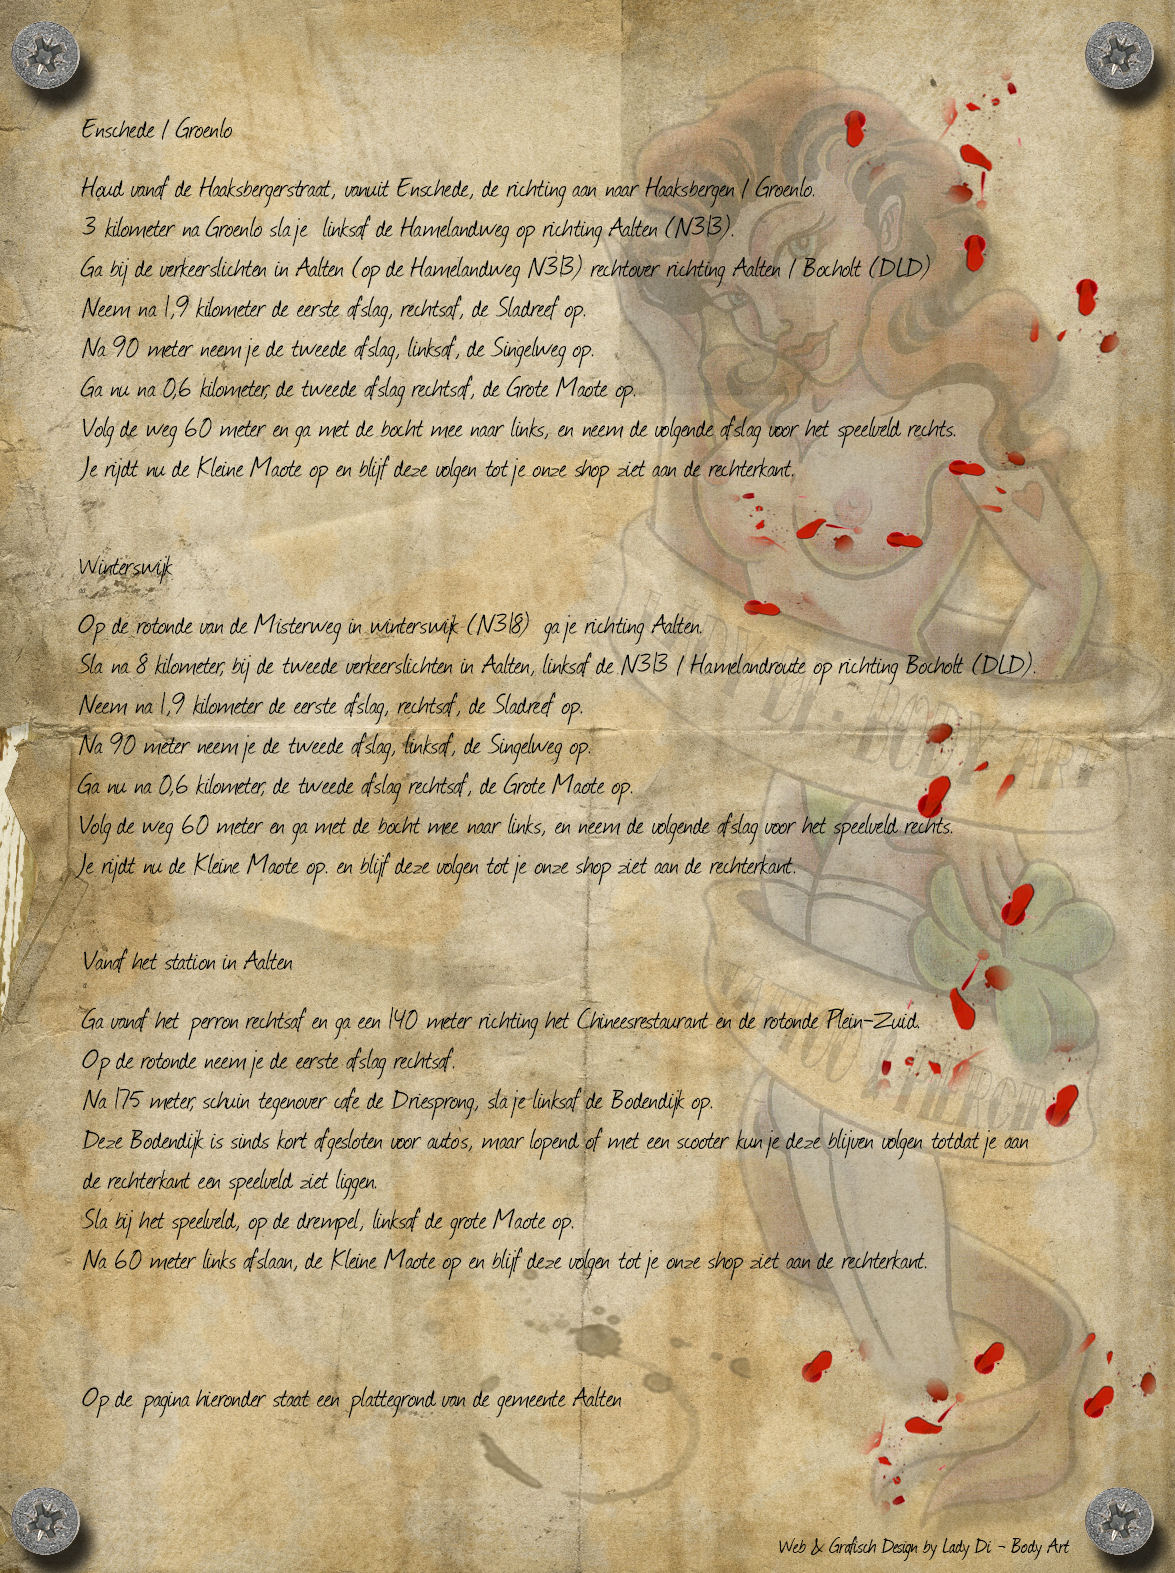 Enschede / Groenlo
Houd vanaf de Haaksbergerstraat, vanuit Enschede, de richting aan naar Haaksbergen / Groenlo.
3 kilometer na Groenlo sla je linksaf de Hamelandweg op richting Aalten (N313).
Ga bij de verkeerslichten in Aalten (op de Hamelandweg N313) rechtover richting Aalten / Bocholt (DLD)
Neem na 1,9 kilometer de eerste afslag, rechtsaf, de Sladreef op.
Na 90 meter neem je de tweede afslag, linksaf, de Singelweg op.
Ga nu na 0,6 kilometer, de tweede afslag rechtsaf, de Grote Maote op.
Volg de weg 60 meter en ga met de bocht mee naar links, en neem de volgende afslag voor het speelveld rechts.
Je rijdt nu de Kleine Maote op en blijf deze volgen tot je onze shop ziet aan de rechterkant.
Winterswijk
Op de rotonde van de Misterweg in winterswijk (N318) ga je richting Aalten.
Sla na 8 kilometer, bij de tweede verkeerslichten in Aalten, linksaf de N313 / Hamelandroute op richting Bocholt (DLD).
Neem na 1,9 kilometer de eerste afslag, rechtsaf, de Sladreef op.
Na 90 meter neem je de tweede afslag, linksaf, de Singelweg op.
Ga nu na 0,6 kilometer, de tweede afslag rechtsaf, de Grote Maote op.
Volg de weg 60 meter en ga met de bocht mee naar links, en neem de volgende afslag voor het speelveld rechts.
Je rijdt nu de Kleine Maote op. en blijf deze volgen tot je onze shop ziet aan de rechterkant.
LADY DI - BODY ART
Vanaf het station in Aalten
Ga vanaf het perron rechtsaf en ga een 140 meter richting het Chineesrestaurant en de rotonde Plein-Zuid.
Op de rotonde neem je de eerste afslag rechtsaf.
Na 175 meter, schuin tegenover cafe de Driesprong, sla je linksaf de Bodendijk op.
Deze Bodendijk is sinds kort afgesloten voor auto's, maar lopend of met een scooter kun je deze blijven volgen totdat je aan
de rechterkant een speelveld ziet liggen.
Sla bij het speelveld, op de drempel, linksaf de grote Maote op.
Na 60 meter links afslaan, de Kleine Maote op en blijf deze volgen tot je onze shop ziet aan de rechterkant.
Op de pagina hieronder staat een plattegrond van de gemeente Aalten
Web & Grafisch Design by Lady Di - Body Art